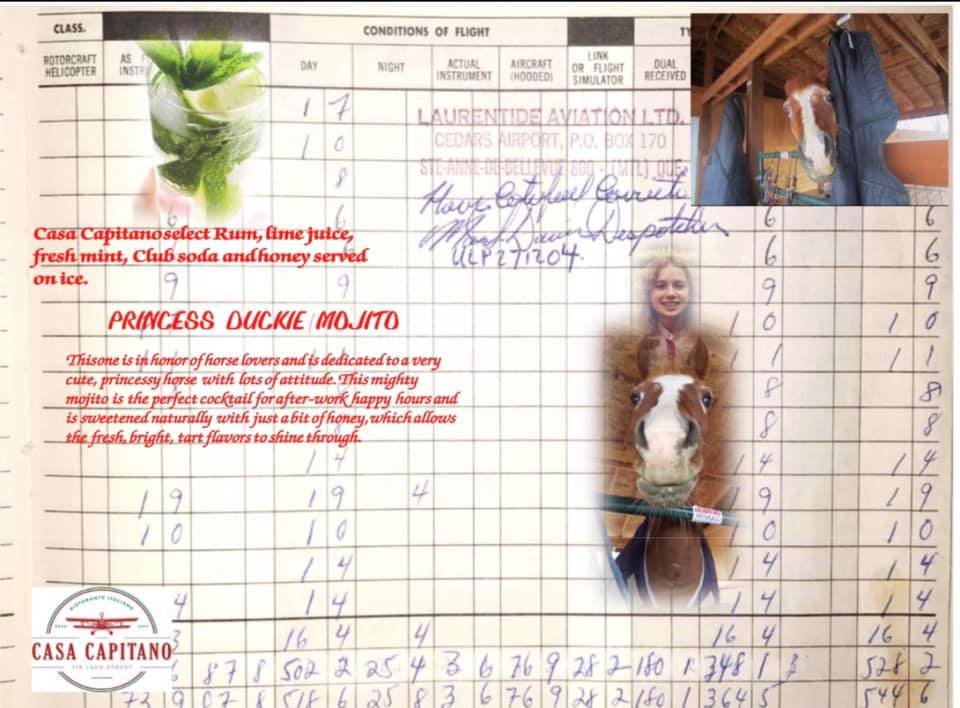 CLASS. CONDITIONS OF FLIGHT
ROTORCRAFT HELICOPTER DAY NIGHT ACTUAL INSTRUMENT AIRCRAFT (HOODED) LINK OR FLIGHT SIMULATOR DUAL RECEIVED
1 7
LAURENTIDE AVIATION LTD.
1 0
CEDARS AIRPORT, P.O. BOX 170
8
STE-ANNE-DE-BELLEVUE 800 - (MTL) QUE
Correct
6 6
Despatcher
ULP271204.
6 6
Casa Capitano select Rum, lime juice,
fresh mint, Club soda and honey served
on ice.
9 9 9 9
PRINCESS DUCKIE MOJITO
1 0 1 0
This one is in honor of horse lovers and is dedicated to a very
1 1 1 1
cute, princessy horse with lots of attitude. This mighty
8 8
mojito is the perfect cocktail for after-work happy hours and
is sweetened naturally with just a bit of honey, which allows
8 8
the fresh, bright, tart flavors to shine through.
1 4 1 4 1 4
1 9 1 9 4 9 1 9
1 0 1 0 0 1 0
1 4 1 4 1 4
4 1 4 1 4 1 4
3 16 4 4 16 4 16 4
6 87 8 502 2 25 4 3 6 76 9 28 2 180 1 348 1 528 2
73 9 07 8 518 6 25 8 3 6 76 9 28 2 180 1 364 5 544 6
RISTORANTE ITALIANO
CASA CAPITANO
LAKE STREET